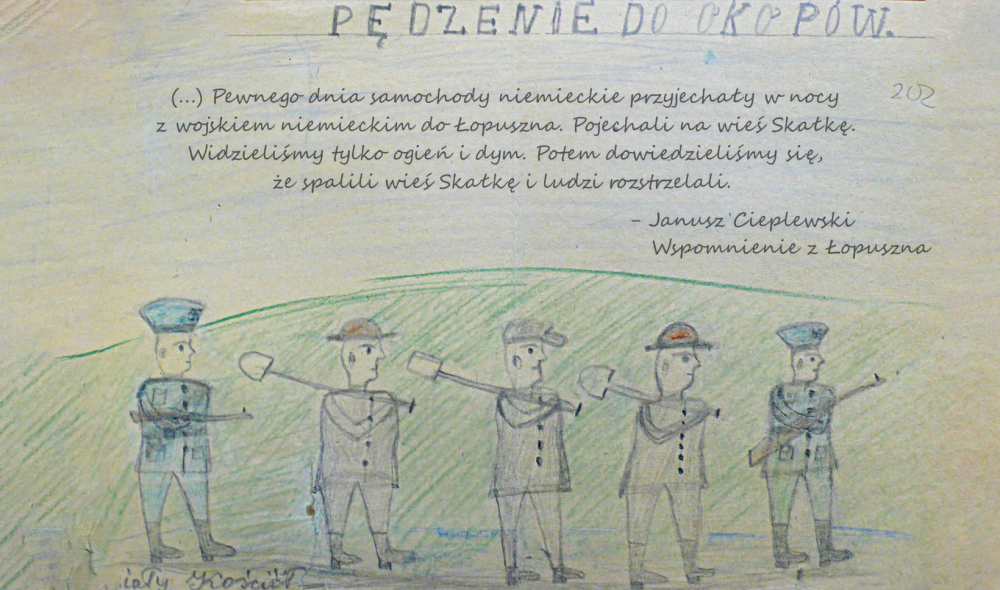 PĘDZENIE DO OKOPÓW.
202
(...) Pewnego dnia samochody niemieckie przyjechały w nocy
z wojskiem niemieckim do Łopuszna. Pojechali na wieś Skałkę.
Widzieliśmy tylko ogień i dym. Potem dowiedzieliśmy się,
że spalili wieś Skałkę i ludzi rozstrzelali.
- Janusz Cieplewski
Wspomnienie z Łopuszna
iały Kościół